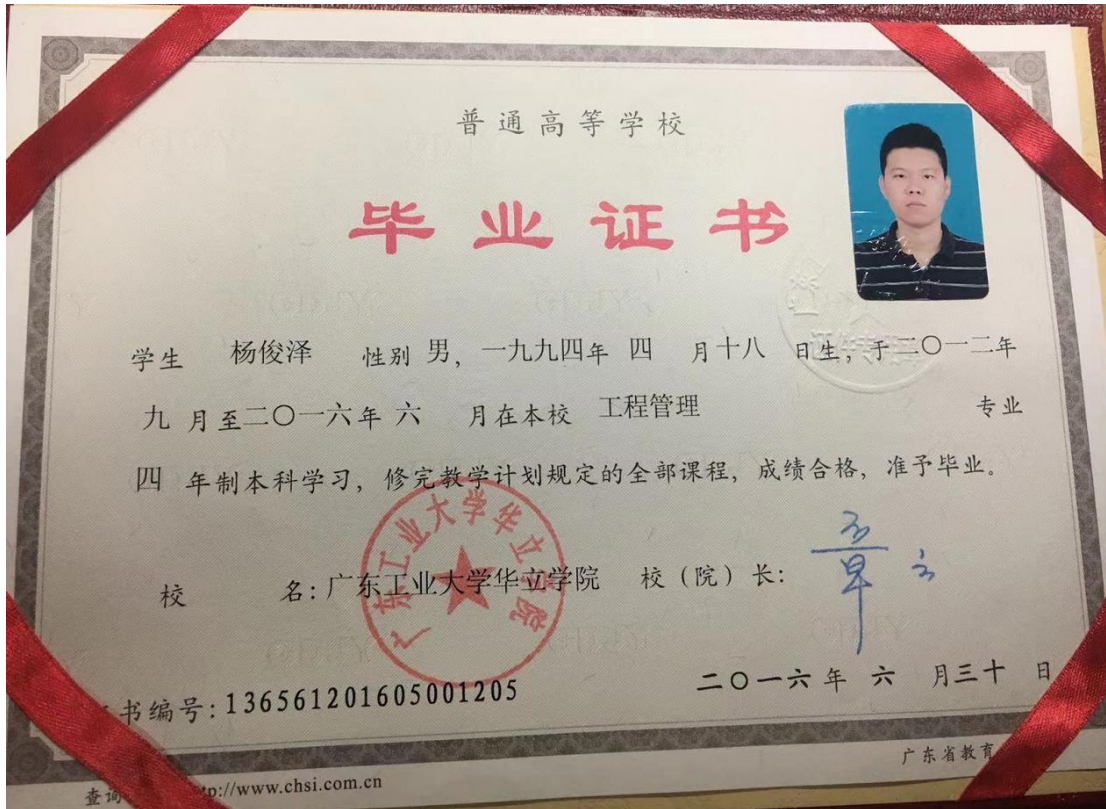 普通高等学校
毕业证书
学生 杨俊泽 性别 男，一九九四年 四 月十八 日生，于二〇一二年
九 月至二〇一六年 六 月在本校 工程管理 专业
四 年制本科学习，修完教学计划规定的全部课程，成绩合格，准予毕业。
广东工业大学华立学院
校 名：广东工业大学华立学院 校（院）长：
书编号：136561201605001205 二〇一六年 六 月三十 日
广东省教育
查询 tp://www.chsi.com.cn